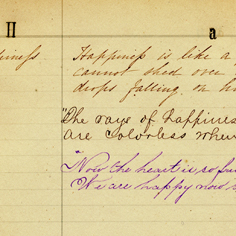 H a
Happiness is like a
cannot shed over
drops falling on
"The rays of happines
are colorless when
"Now the heart is so fu
We are happy now